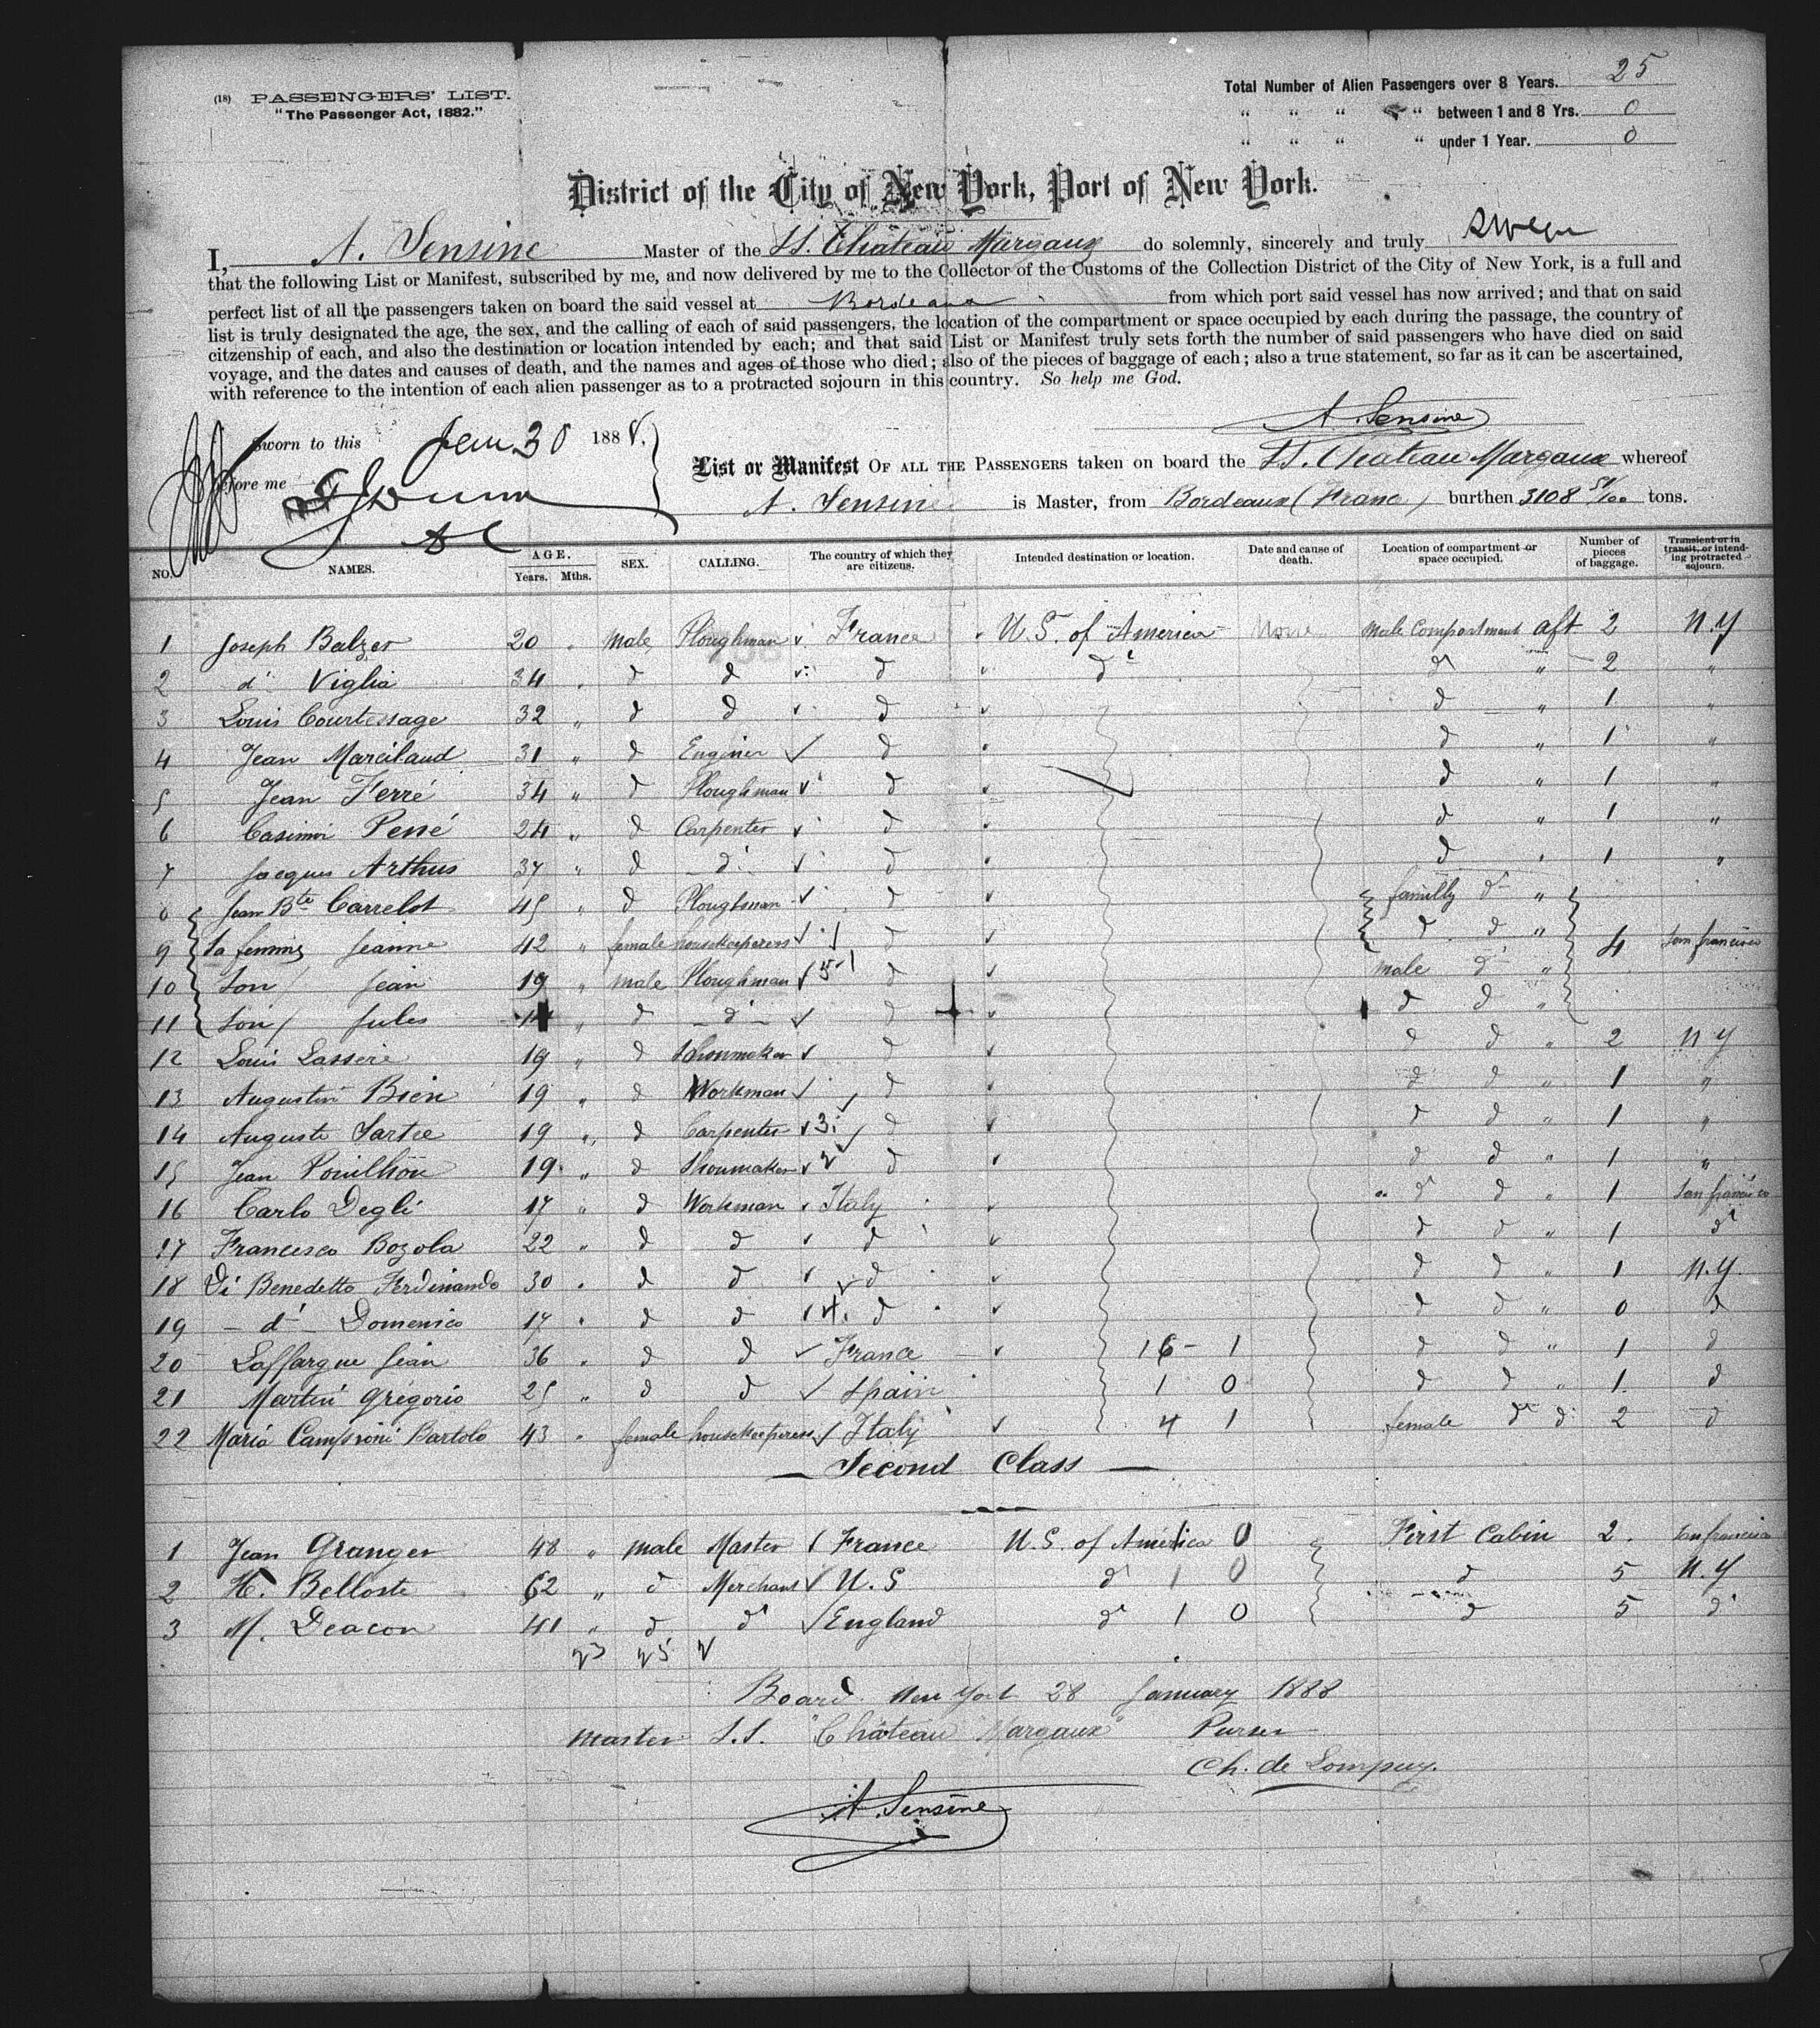 (18) PASSENGERS' LIST.
"The Passenger Act, 1882."
Total Number of Alien Passengers over 8 Years. 25
" " " " between 1 and 8 Yrs. 0
" " " " under 1 Year. 0
District of the City of New York, Port of New York.
I, A. Sensine Master of the SS. Chateau Margaux do solemnly, sincerely and truly swear
that the following List or Manifest, subscribed by me, and now delivered by me to the Collector of the Customs of the Collection District of the City of New York, is a full and
perfect list of all the passengers taken on board the said vessel at Bordeaux from which port said vessel has now arrived; and that on said
list is truly designated the age, the sex, and the calling of each of said passengers, the location of the compartment or space occupied by each during the passage, the country of
citzenship of each, and also the destination or location intended by each; and that said List or Manifest truly sets forth the number of said passengers who have died on said
voyage, and the dates and causes of death, and the names and ages of those who died; also of the pieces of baggage of each; also a true statement, so far as it can be ascertained,
with reference to the intention of each alien passenger as to a protracted sojourn in this country. So help me God.
A. Sensine
Sworn to this Jan 30 1888.
before me
List or Manifest OF ALL THE PASSENGERS taken on board the SS. Chateau Margaux whereof
A. Sensine is Master, from Bordeaux (France) burthen 3108 51/100 tons.
NO. NAMES. AGE. Years. Mths. SEX. CALLING. The country of which they are citizens. Intended destination or location. Date and cause of death. Location of compartment or space occupied. Number of pieces of baggage. Transient or in transit, or intending protracted sojourn.
1 Joseph Balzer 20 " Male Ploughman France U.S. of America None Male Compartment aft 2 N.Y
2 d° Viglia 34 " d d d d° d " 2 "
3 Louis Courtessage 32 " d d d d " 1 "
4 Jean Marcilaud 31 " d Enginer d d " 1 "
5 Jean Ferré 34 " d Ploughman d d " 1 "
6 Casimir Pené 24 " d Carpenter d d " 1 "
7 Jacques Arthus 37 " d d° d d " 1 "
8 Jean Bte Carrelot 45 " d Ploughman d familly d "
9 Sa femme Jeanne 42 " female housekeeperess d d d " 4 San francisco
10 Son / Jean 19 " male Ploughman d male d "
11 Son / Jules 14 " d d° d d d "
12 Louis Lassere 19 " d Shoumaker d d d " 2 N Y
13 Augustin Bien 19 " d Workman d d d " 1 "
14 Auguste Sartre 19 " d Carpenter 3 d d d " 1 "
15 Jean Pouilhou 19 " d Shoumaker 2 d d d " 1 "
16 Carlo Degli 17 " d Workman Italy d d " 1 San francisco
17 Francesco Bozola 22 " d d d d d " 1 d°
18 Di Benedetto Ferdinando 30 " d d d d d " 1 N.Y.
19 d° Domenico 17 " d d 4 d d d " 0 d
20 Laffargue Jean 36 " d d France 16 - 1 d d " 1 d
21 Martin Grégorio 25 " d d Spain 1 0 d d " 1 d
22 Maria Campioni Bartolo 43 " female housekeeperess Italy 4 1 female d° d 2 d
— Second Class —
1 Jean Granger 48 " male Master France U.S. of América 0 First Cabin 2 San francisco
2 H. Belloste 62 " d Merchant U.S d° 1 0 d 5 N.Y
3 M. Deacon 41 " d d° England d° 1 0 d 5 d°
23 25 2
Board New York 28 January 1888
Master S.S. "Château Margaux" Purser
Ch. de Lompuy.
A. Sensine